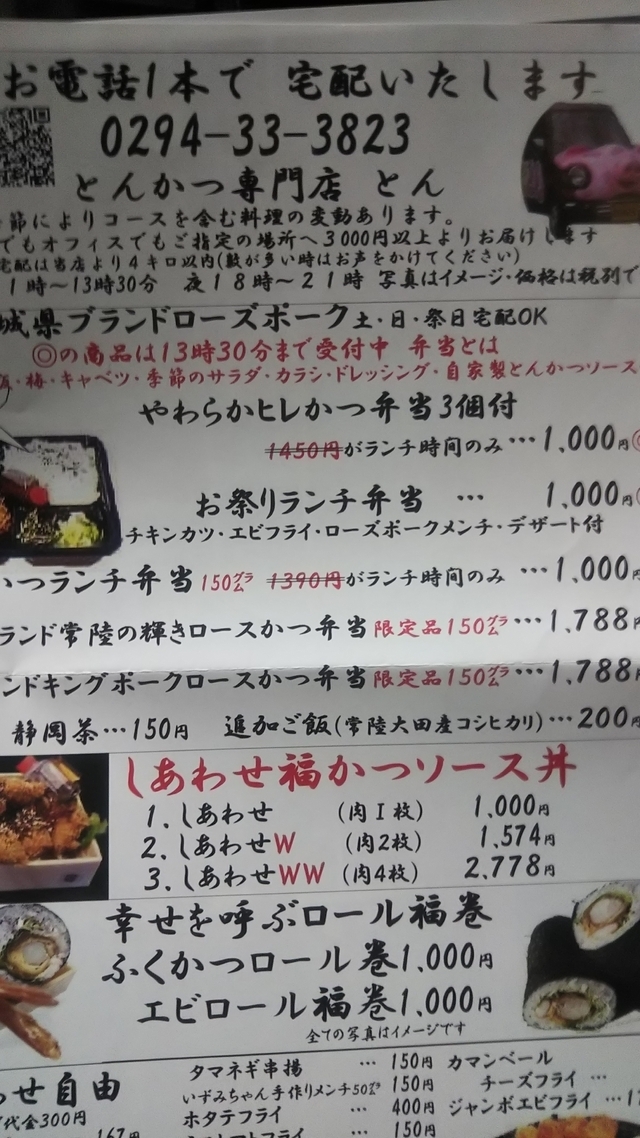 お電話1本で 宅配いたします
0294-33-3823
とんかつ専門店 とん
節によりコースを含む料理の変動あります。
でもオフィスでもご指定の場所へ3000円以上よりお届けします
宅配は当店より4キロ以内(数が多い時はお声をかけてください)
1時〜13時30分 夜18時〜21時 写真はイメージ・価格は税別で
城県ブランドローズポーク土・日・祭日宅配OK
◎の商品は13時30分まで受付中 弁当とは
・梅・キャベツ・季節のサラダ・カラシ・ドレッシング・自家製とんかつソース
やわらかヒレかつ弁当3個付
1450円がランチ時間のみ…1,000円◎
お祭りランチ弁当 … 1,000円
チキンカツ・エビフライ・ローズポークメンチ・デザート付
かつランチ弁当150グラム 1390円がランチ時間のみ …1,000円
ランド常陸の輝きロースかつ弁当限定品150グラム…1,788円
ンドキングポークロースかつ弁当限定品150グラム…1,788円
静岡茶…150円 追加ご飯(常陸大田産コシヒカリ)…200円
しあわせ福かつソース丼
1.しあわせ (肉1枚) 1,000円
2.しあわせW (肉2枚) 1,574円
3.しあわせWW (肉4枚) 2,778円
幸せを呼ぶロール福巻
ふくかつロール巻1,000円
エビロール福巻1,000円
全ての写真はイメージです
わせ自由
代金300円
167円
タマネギ串揚 … 150円
いずみちゃん手作りメンチ50グラム 150円
ホタテフライ … 400円
トフライ … 150円
カマンベール
チーズフライ …
ジャンボエビフライ …